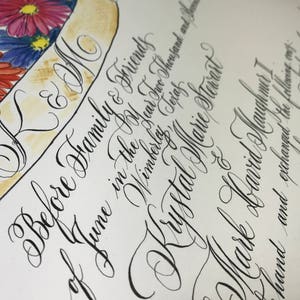 K & M
Before Family & Friends
of June in the Year Two Thousand and
Wimberley, Texas
Krystal Marie Stewart
&
Mark David
hand and exchanged the following